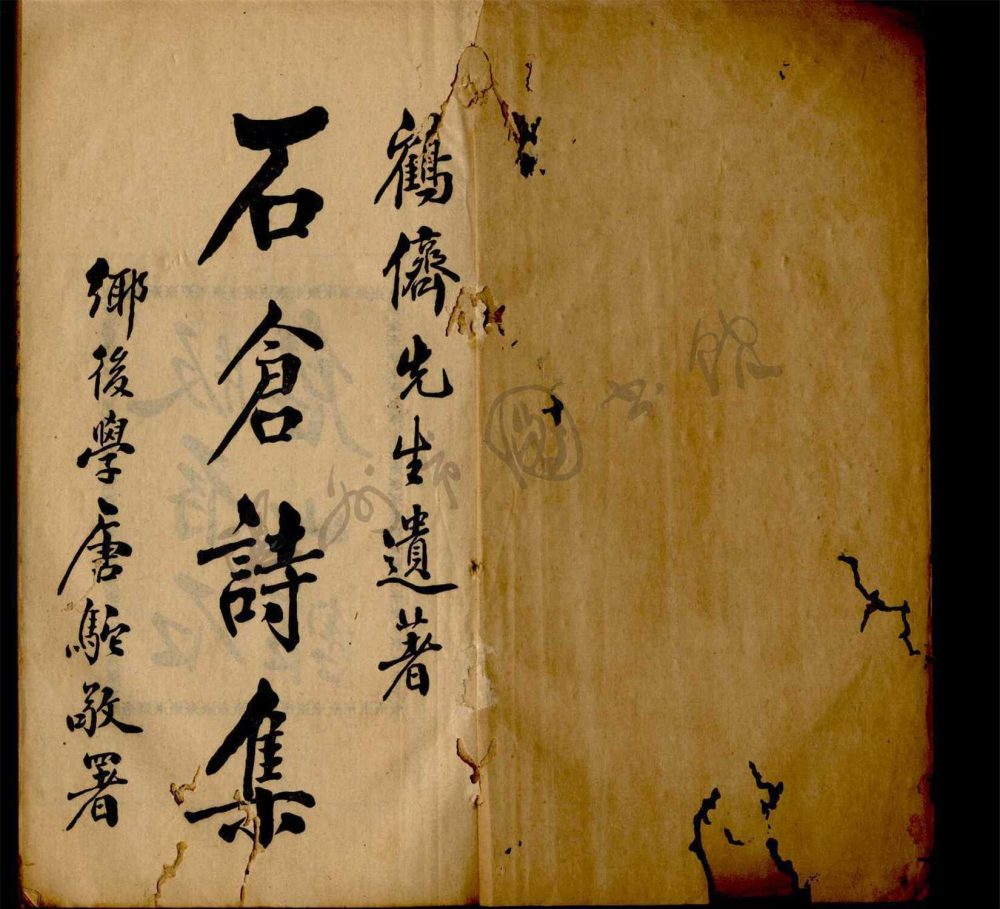 鶴儕先生遺著
石倉詩集
鄉後學唐駝敬署